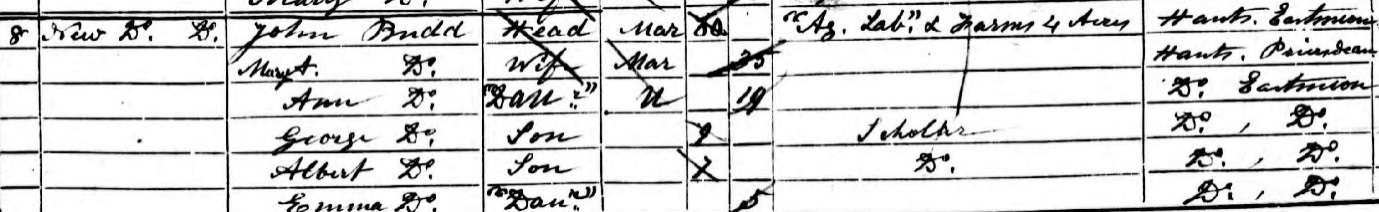 8 New Do. Do. John Budd Head Mar "Ag. Lab." & Farms 4 Acres Hants. Eastmeon
Mary A. Do. Wife Mar 35 Hants. Priorsdean
Ann Do. "Dau." U 19 Do. Eastmeon
George Do. Son 9 Scholar Do. , Do.
Albert Do. Son 7 Do. Do. , Do.
Emma Do. "Dau." 5 Do. , Do.